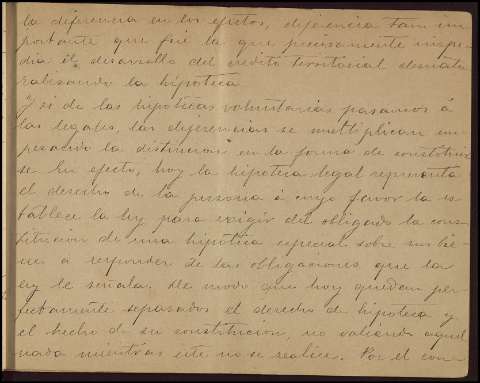 la diferencia en los efectos, diferencia tan im
portante que fué la que precisamente impe-
dia el desarrollo del crédito territorial desnatu
ralizando la hipoteca
Y si de las hipotecas voluntarias pasamos á
las legales, las diferencias se multiplican em
pezando la distincion en la forma de constituir
se En efecto, hoy la hipoteca legal representa
el derecho de la persona á cuyo favor la es
tablece la ley para exigir del obligado la cons
titucion de una hipoteca especial sobre sus bie
nes a responder de las obligaciones que la
ley le señala. De modo que hoy quedan per-
fectamente separados el derecho de hipoteca y
el hecho de su constitucion, no valiendo aquel
nada mientras este no se realice. Por el con-